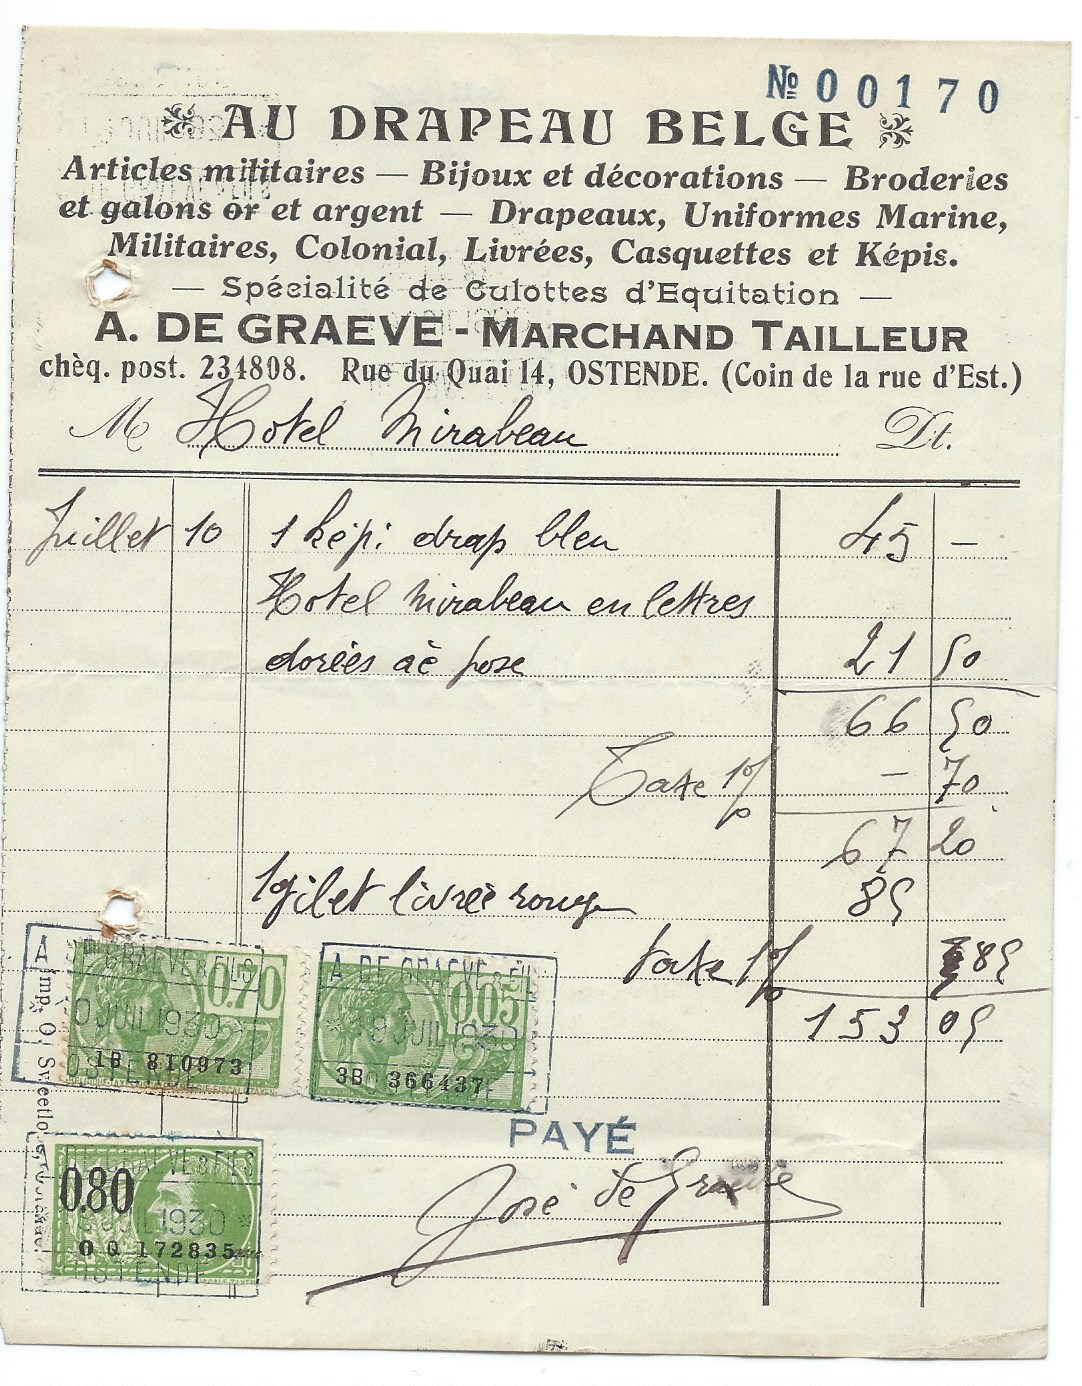 Nº 00170
AU DRAPEAU BELGE
Articles militaires — Bijoux et décorations — Broderies
et galons or et argent — Drapeaux, Uniformes Marine,
Militaires, Colonial, Livrées, Casquettes et Képis.
— Spécialité de Culottes d'Equitation —
A. DE GRAEVE - MARCHAND TAILLEUR
chèq. post. 234808. Rue du Quai 14, OSTENDE. (Coin de la rue d'Est.)
M Hotel Mirabeau Dt.
Juillet 10 1 képi drap bleu 45 —
Hotel Mirabeau en lettres
dorées aè pose 21 50
66 50
Taxe 1% — 70
67 20
1 gilet livrée rouge 85
taxe 1% 85
153 05
A. DE GRAEVE & FILS
0.70
0 JUIL 1930
1B 810973
OSTENDE
A. DE GRAEVE & FIL
0.05
9 JUIL 1930
3B 366437
PAYÉ
José de Graeve
VE & FILS
0.80
JUIL 1930
O Q 172835
OSTENDE
Imp. O.